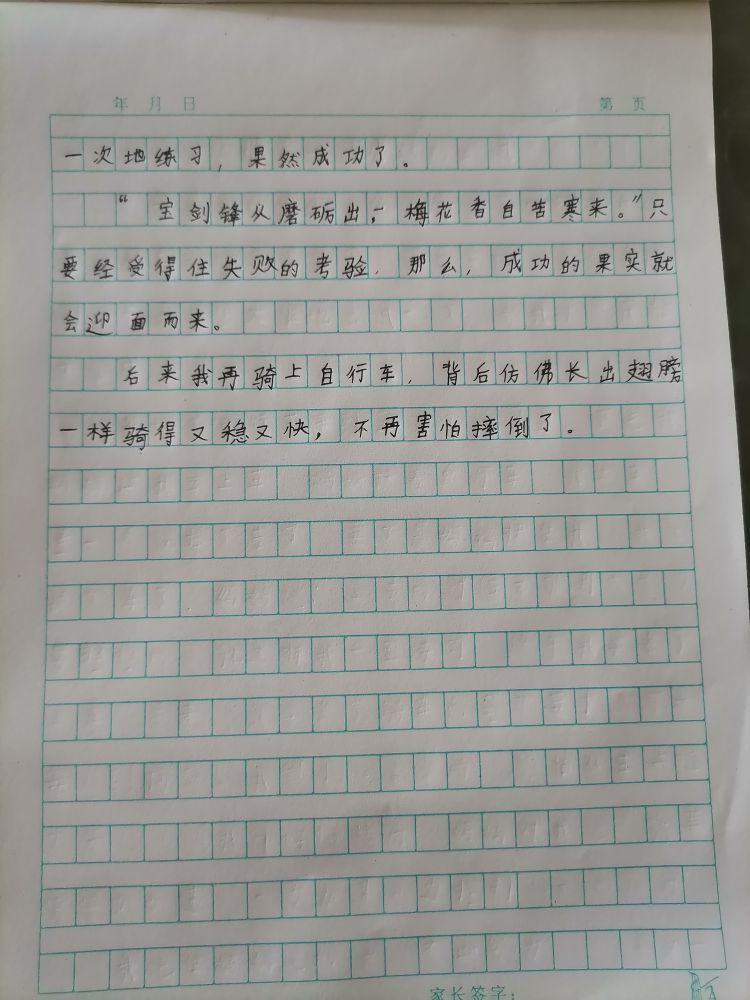 年 月 日 第 页
一次地练习,果然成功了。
“宝剑锋从磨砺出,梅花香自苦寒来。”只
要经受得住失败的考验,那么,成功的果实就
会迎面而来。
后来我再骑上自行车,背后仿佛长出翅膀
一样骑得又稳又快,不再害怕摔倒了。
家长签字: